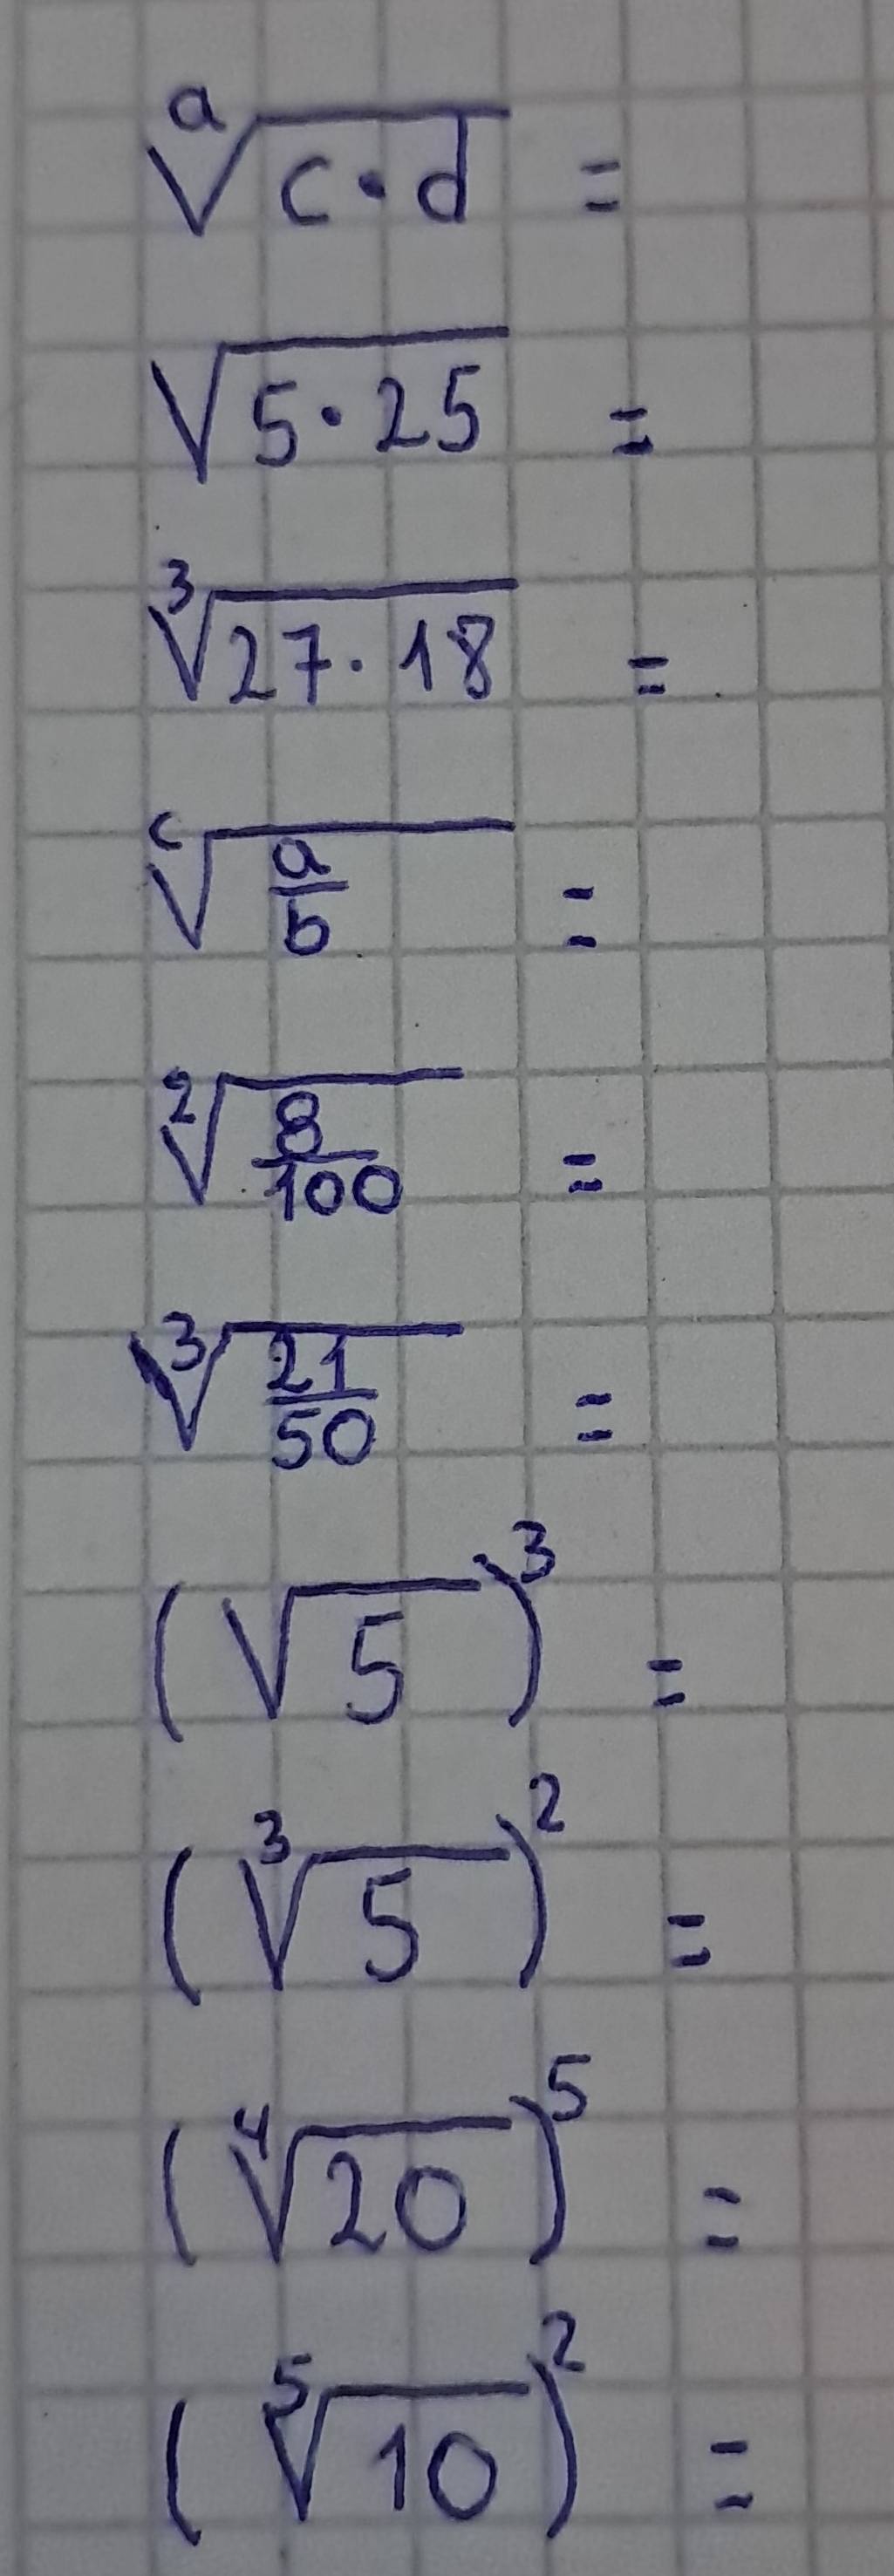 ᵃ√(c·d) =
√(5·25) =
³√(27·18) =
ᶜ√(a/b) =
²√(8/100) =
³√(21/50) =
(√5)³ =
(³√5)² =
(⁴√20)⁵ =
(⁵√10)² =